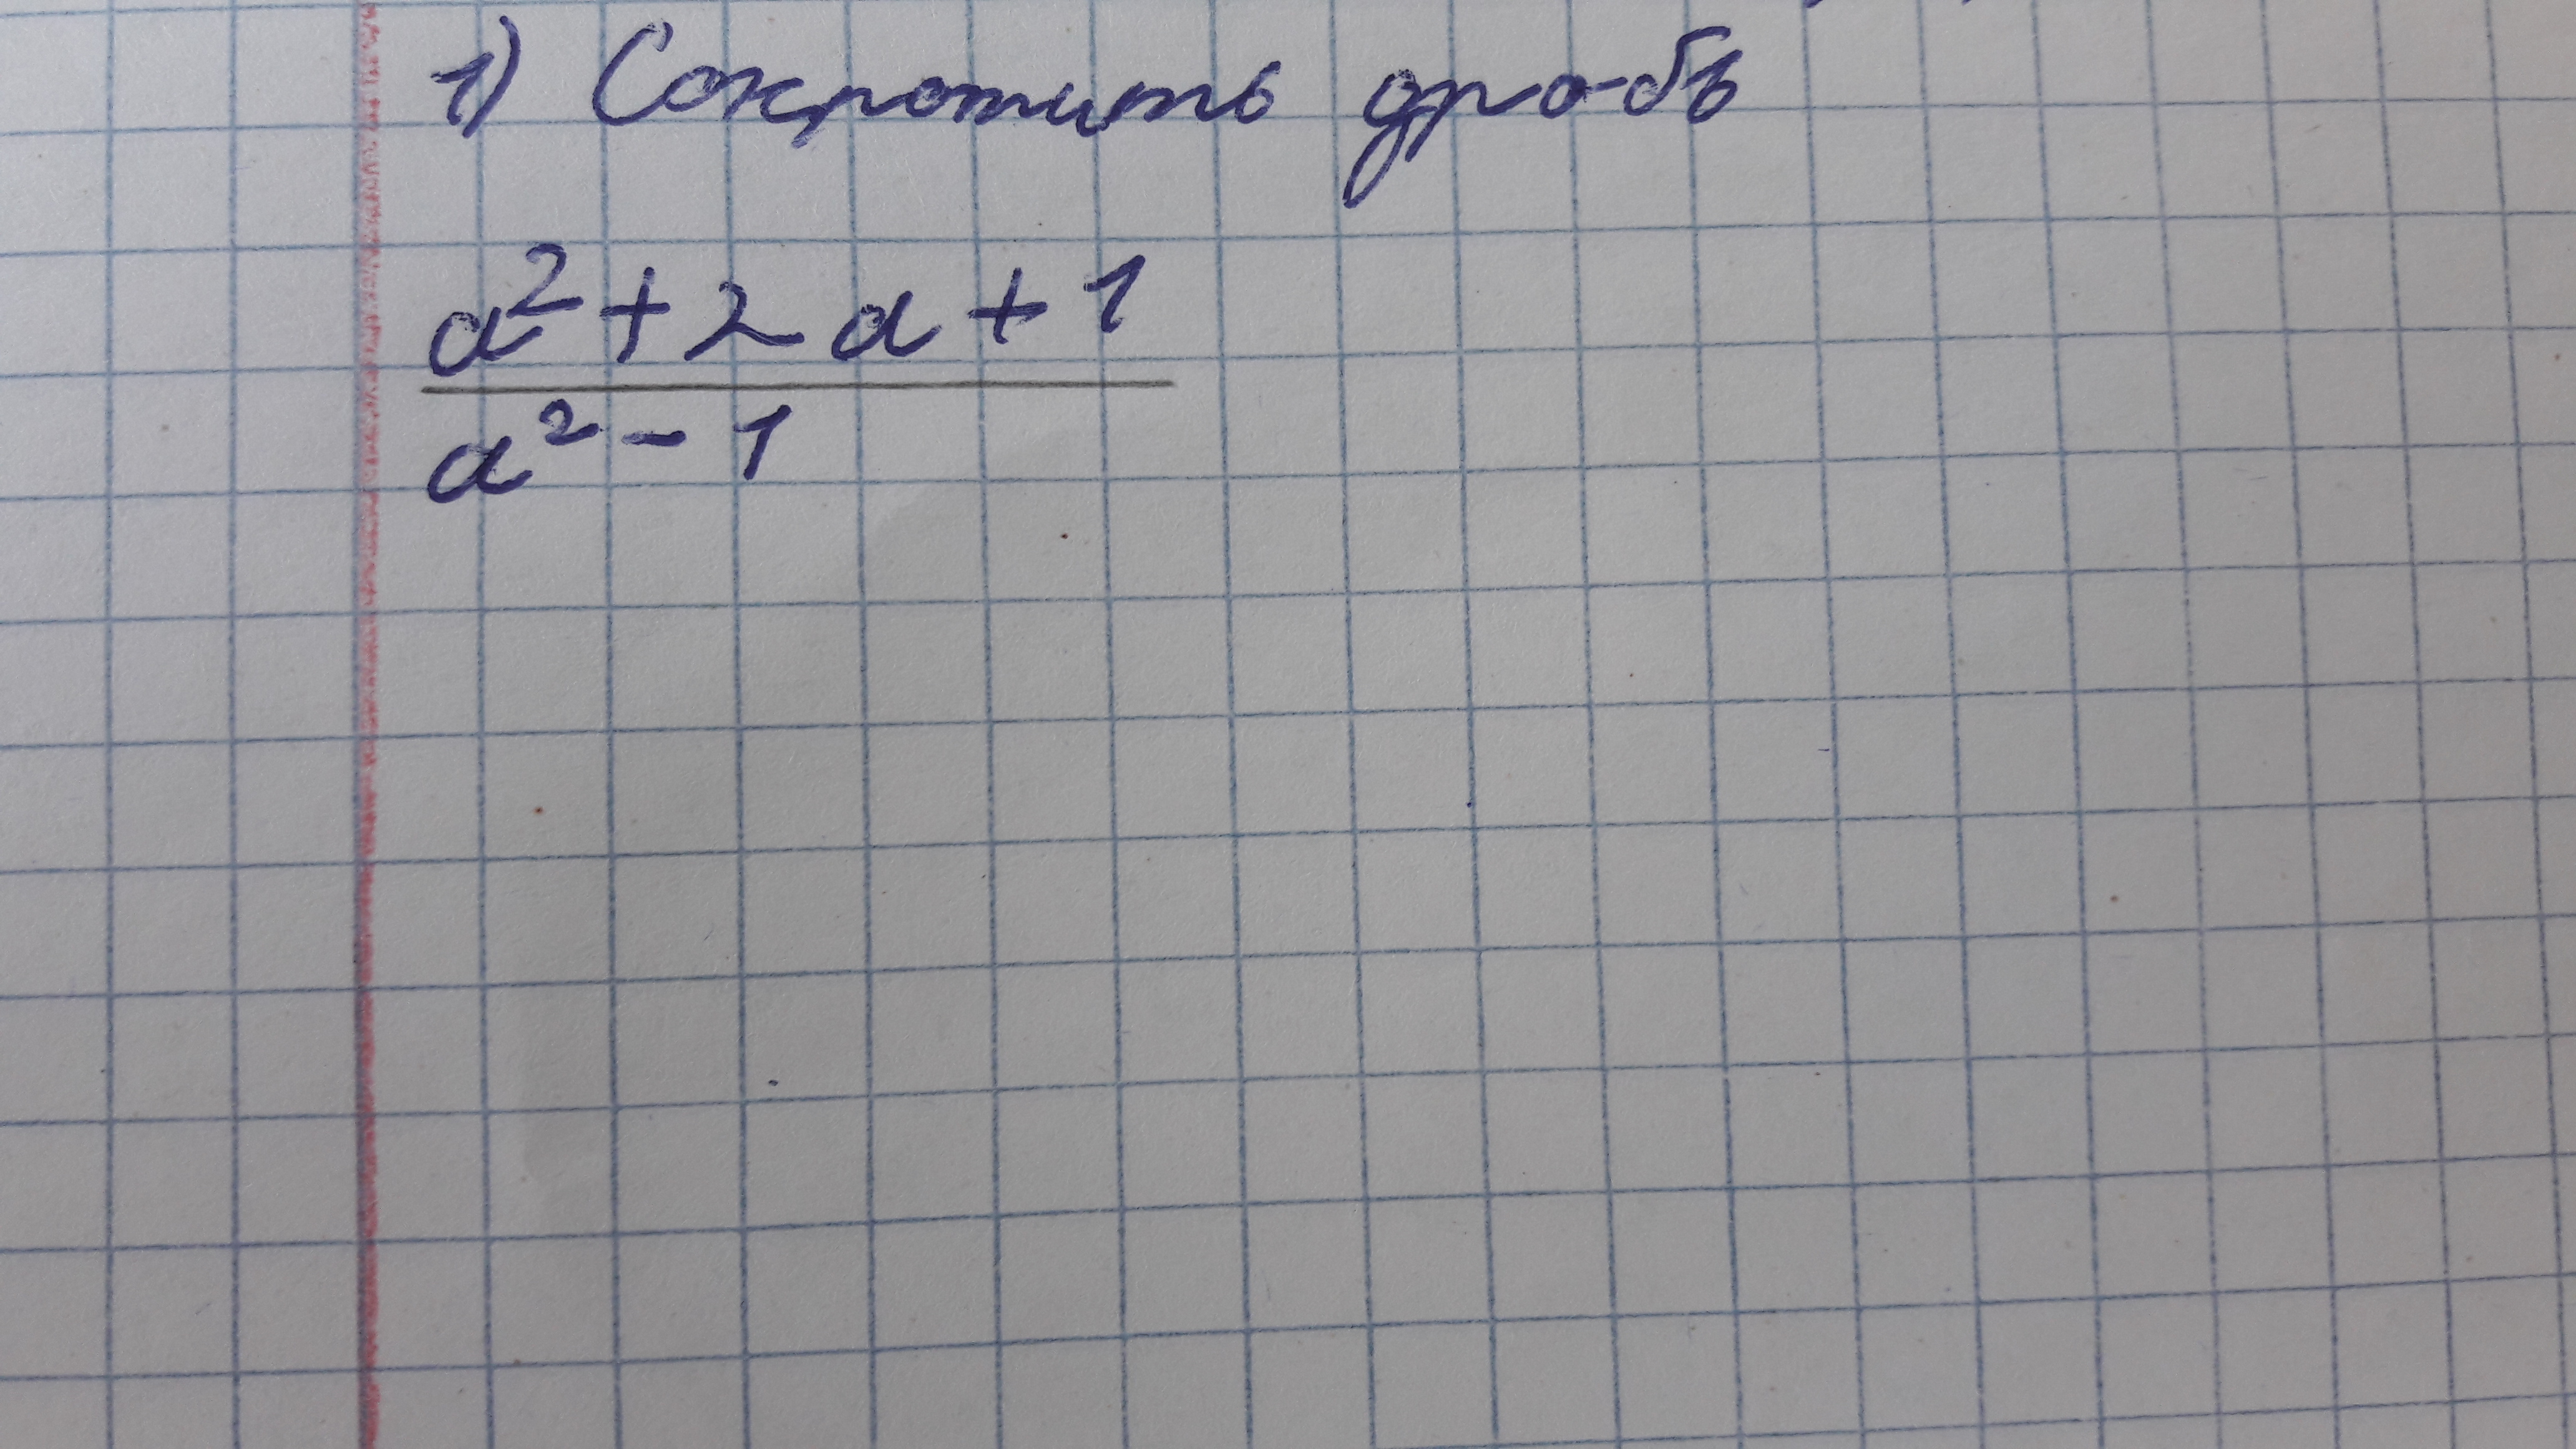 1) Сократить дробь
a² + 2a + 1
a² - 1